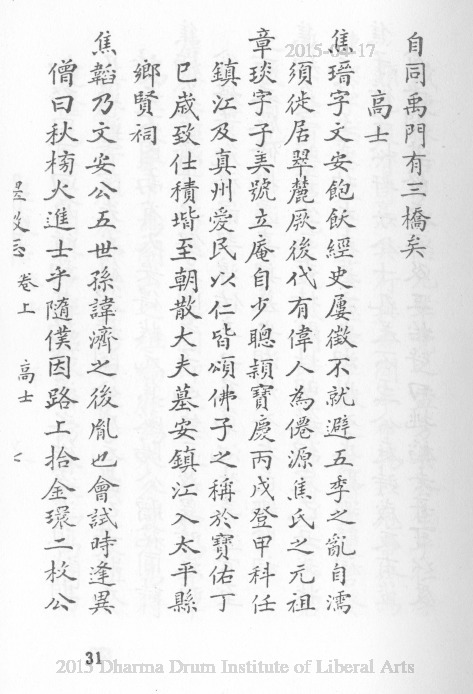 自同禹門有三橋矣
高士
焦瑨字文安飽飫經史屢徵不就避五季之亂自濡
須徙居翠麓厥後代有偉人為僊源焦氏之元祖
章琰字子美號立庵自少聰穎寶慶丙戌登甲科任
鎮江及真州愛民以仁皆頌佛子之稱於寶佑丁
巳歲致仕積堦至朝散大夫墓安鎮江入太平縣
鄉賢祠
焦韜乃文安公五世孫諱濟之後胤也會試時逢異
僧曰秋榜火進士乎隨僕因路上拾金環二枚公
卷上 高士
31
2015-04-17
2015 Dharma Drum Institute of Liberal Arts